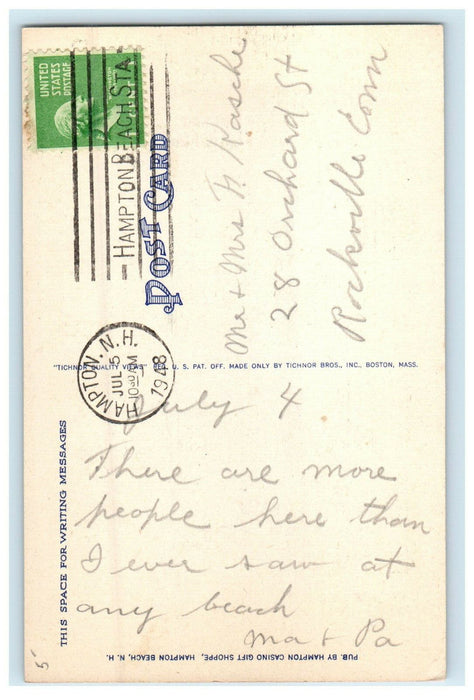 UNITED
STATES
POSTAGE
HAMPTON BEACH. STA
POST CARD
HAMPTON. N.H.
JUL 5
10 30 AM
1948
Mr + Mrs F. Rasche
28 Orchard St
Rockville Conn
"TICHNOR QUALITY VIEWS" REG. U. S. PAT. OFF. MADE ONLY BY TICHNOR BROS., INC., BOSTON, MASS.
THIS SPACE FOR WRITING MESSAGES
July 4
There are more
people here than
I ever saw at
any beach
Ma + Pa
PUB. BY HAMPTON CASINO GIFT SHOPPE, HAMPTON BEACH, N. H.
5